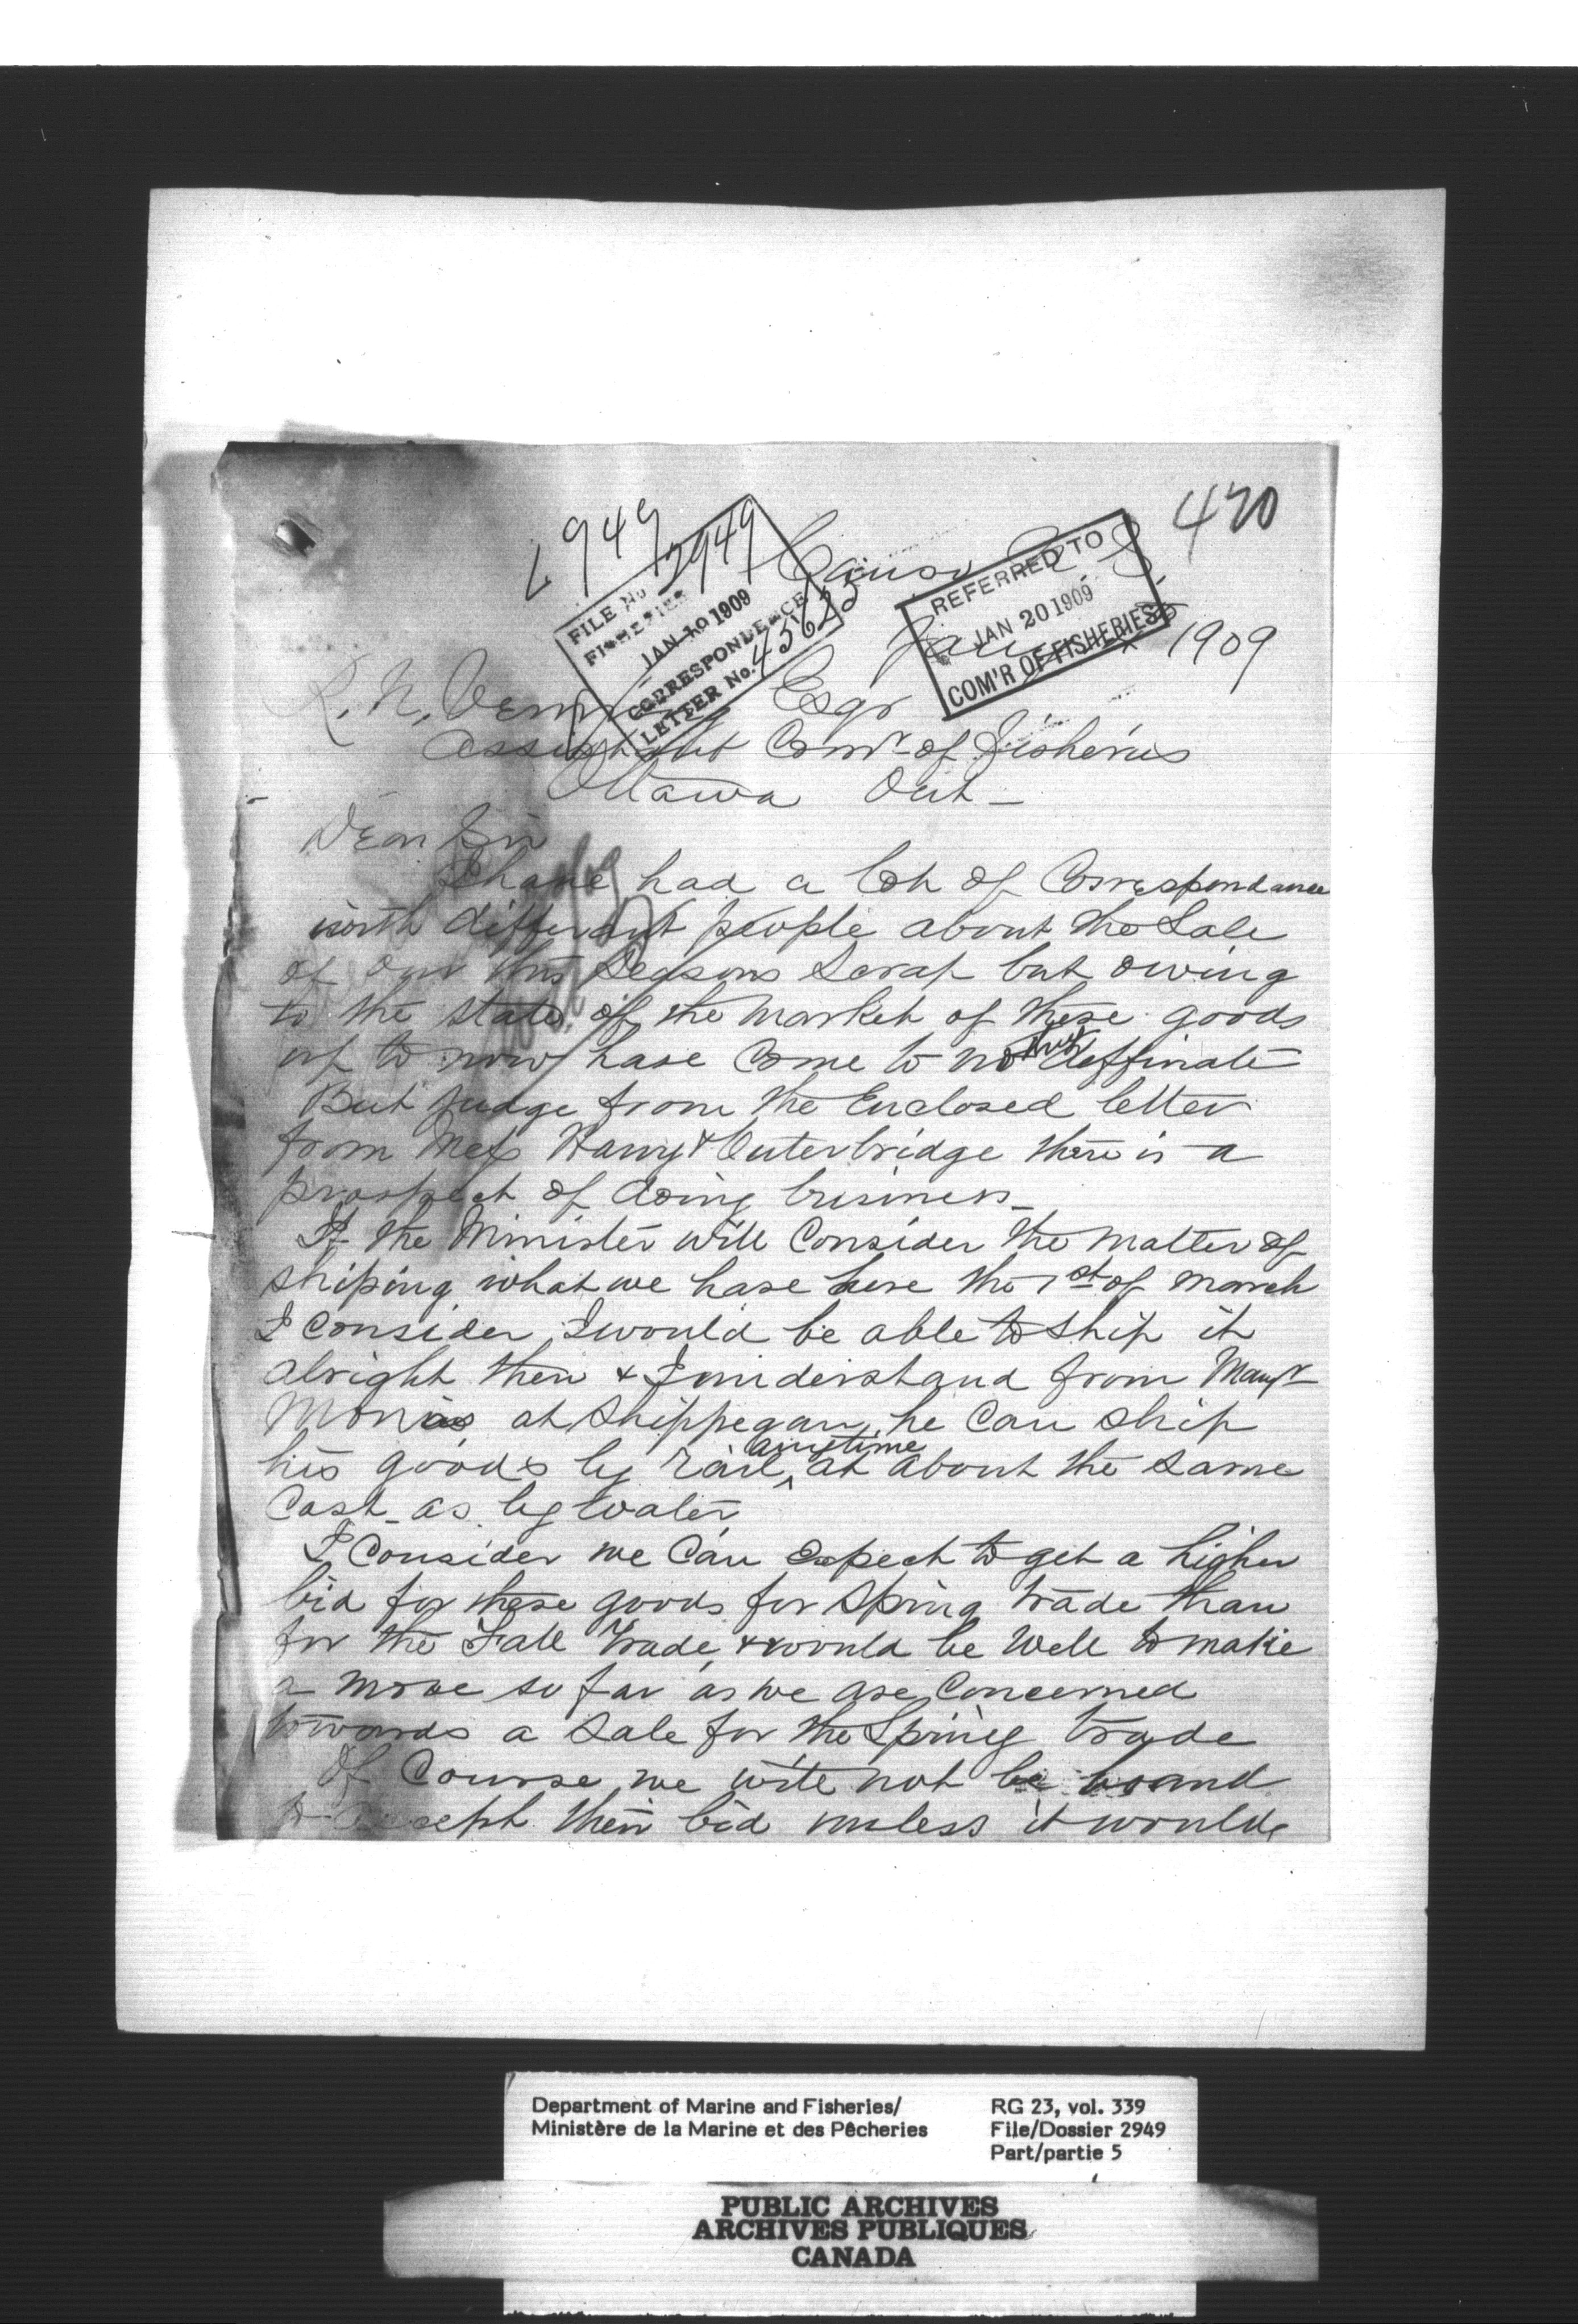 470
2949
Canso N.S.
FILE No 2949
FISHERIES
JAN 20 1909
CORRESPONDENCE
LETTER No. 45623
REFERRED TO
JAN 20 1909
COM'R OF FISHERIES
1909
R. N. Venning Esqr
Assistant Comr of Fisheries
Ottawa Ont-
Dear Sir
I have had a lot of Correspondance
with different people about the Sale
of our this Seasons Scrap but owing
to the state of the Market of these goods
up to now have Come to no deffinate
But judge from the Enclosed letter
from Mess Harvey & Outerbridge there is a
prospect of doing business-
If the Minister will Consider the matter of
shiping what we have here the 1st of March
I Consider I would be able to ship it
alright then & I understand from Mangr
at Shippegan he Can ship
his goods by rail anytime at about the Same
Cost as by water
I Consider we Can Expect to get a higher
bid for these goods for Spring trade than
for the Fall Trade, & would be Well to make
a move so far as we are Concerned
towards a Sale for the Spring trade
Of Course we will not be bound
to accept their bid unless it would
Department of Marine and Fisheries/
Ministère de la Marine et des Pêcheries
RG 23, vol. 339
File/Dossier 2949
Part/partie 5
PUBLIC ARCHIVES
ARCHIVES PUBLIQUES
CANADA